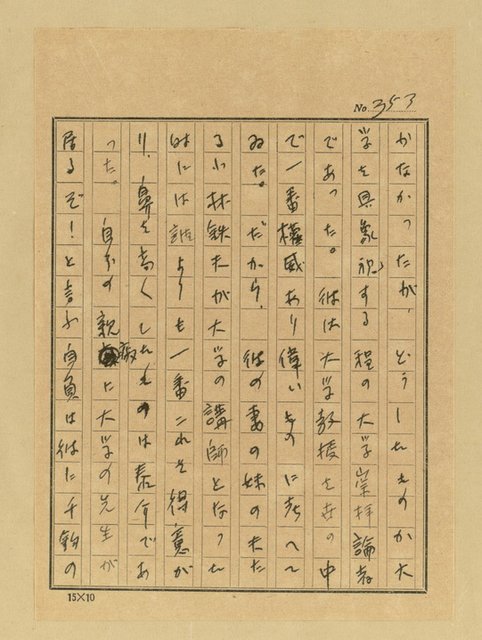 No. 353
かなかつたが、どうしたものか大
学を具象視する程の大学崇拝論者
であつた。彼は大学教授を世の中
で一番権威あり偉いものに考へて
ゐた。だから、彼の妻の妹の夫た
る小林鉄夫が大学の講師となつた
時には誰よりも一番これを得意が
り、鼻を高くしたものは泰介であ
つた。自分の親戚に大学の先生が
居るぞ！と言ふ自負は彼に千鈞の
15×10